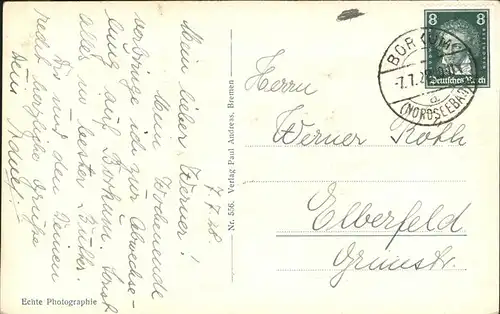 7.7.28.
Mein lieber Werner!
Mein Wochenende
verbringe ich zur Abwechse-
lung auf Borkum. Sonst
alles in bester Butter.
Dir und den Deinen
recht herzliche Grüße
Dein
Echte Photographie
Nr. 556. Verlag Paul Andreas, Bremen
8 8
Deutsches Reich
BORKUM
7.7.2
a
(NORDSEEBAD)
Herrn
Werner Roth
Elberfeld
Grünstr.